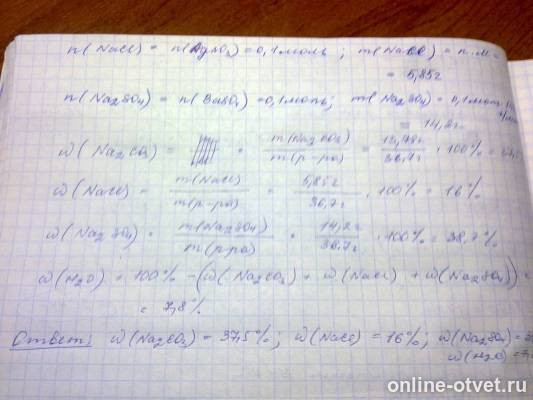 n(NaCl) = n(AgNO₃) = 0,1 моль ; m(NaCl) = n·M =
= 5,85г
n(Na₂SO₄) = n(BaSO₄) = 0,1 моль; m(Na₂SO₄) = 0,1моль
= 14,2г
ω(Na₂CO₃) = m(Na₂CO₃)/m(р-ра) = 13,78г/36,7г · 100% =
ω(NaCl) = m(NaCl)/m(р-ра) = 5,85г/36,7г · 100% = 16%
ω(Na₂SO₄) = m(Na₂SO₄)/m(р-ра) = 14,2г/36,7г · 100% = 38,7%
ω(H₂O) = 100% - (ω(Na₂CO₃) + ω(NaCl) + ω(Na₂SO₄)) =
= 7,8%
Ответ: ω(Na₂CO₃) = 37,5%; ω(NaCl) = 16%; ω(Na₂SO₄) =
ω(H₂O) =
online-otvet.ru